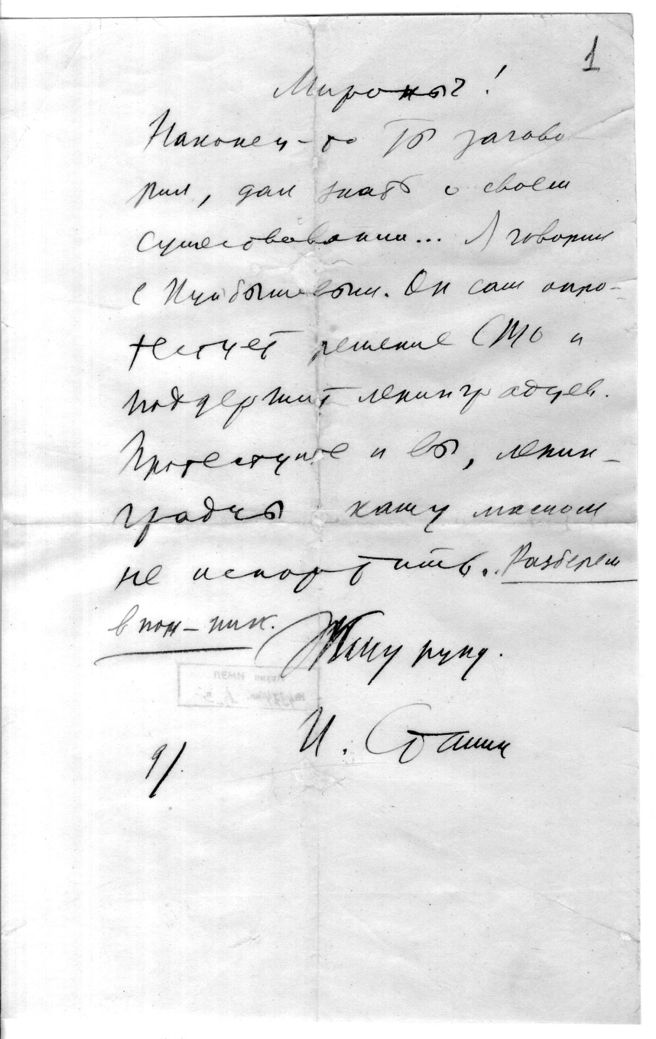 1
Мироныч!
Наконец-то ты загово
рил, дал знать о своем
существовании... Я говорил
с Куйбышевым. Он сам опро-
тестует решение СТО и
поддержит ленинградцев.
Протестуйте и вы, ленин-
градцы кашу маслом
не испортить. Разберем
в пон-ник.
Жму руку.
И. Сталин
9/